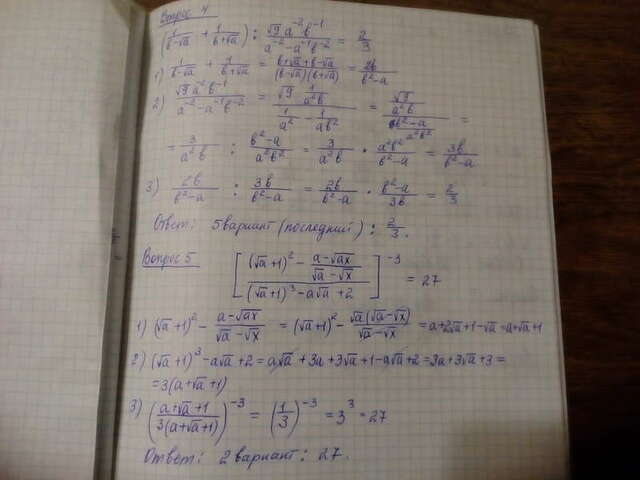 Вопрос 4
(1/(в-√a) + 1/(в+√a)) : (√9 a⁻²в⁻¹)/(a⁻²-a⁻¹в⁻²) = 2/3
1) 1/(в-√a) + 1/(в+√a) = (в+√a+в-√a)/((в-√a)(в+√a)) = 2в/(в²-a)
2) (√9 a⁻²в⁻¹)/(a⁻²-a⁻¹в⁻²) = (√9 1/(a²в))/(1/a² - 1/(aв²)) = (√9/(a²в))/((в²-a)/(a²в²)) =
= 3/(a²в) : (в²-a)/(a²в²) = 3/(a²в) · (a²в²)/(в²-a) = 3в/(в²-a)
3) 2в/(в²-a) : 3в/(в²-a) = 2в/(в²-a) · (в²-a)/3в = 2/3
Ответ: 5 вариант (последний) : 2/3.
Вопрос 5 [((√a+1)² - (a-√ax)/(√a-√x))/((√a+1)³-a√a+2)]⁻³ = 27
1) (√a+1)² - (a-√ax)/(√a-√x) = (√a+1)² - (√a(√a-√x))/(√a-√x) = a+2√a+1-√a = a+√a+1
2) (√a+1)³-a√a+2 = a√a+3a+3√a+1-a√a+2 = 3a+3√a+3 =
= 3(a+√a+1)
3) ((a+√a+1)/(3(a+√a+1)))⁻³ = (1/3)⁻³ = 3³ = 27
Ответ: 2 вариант: 27.